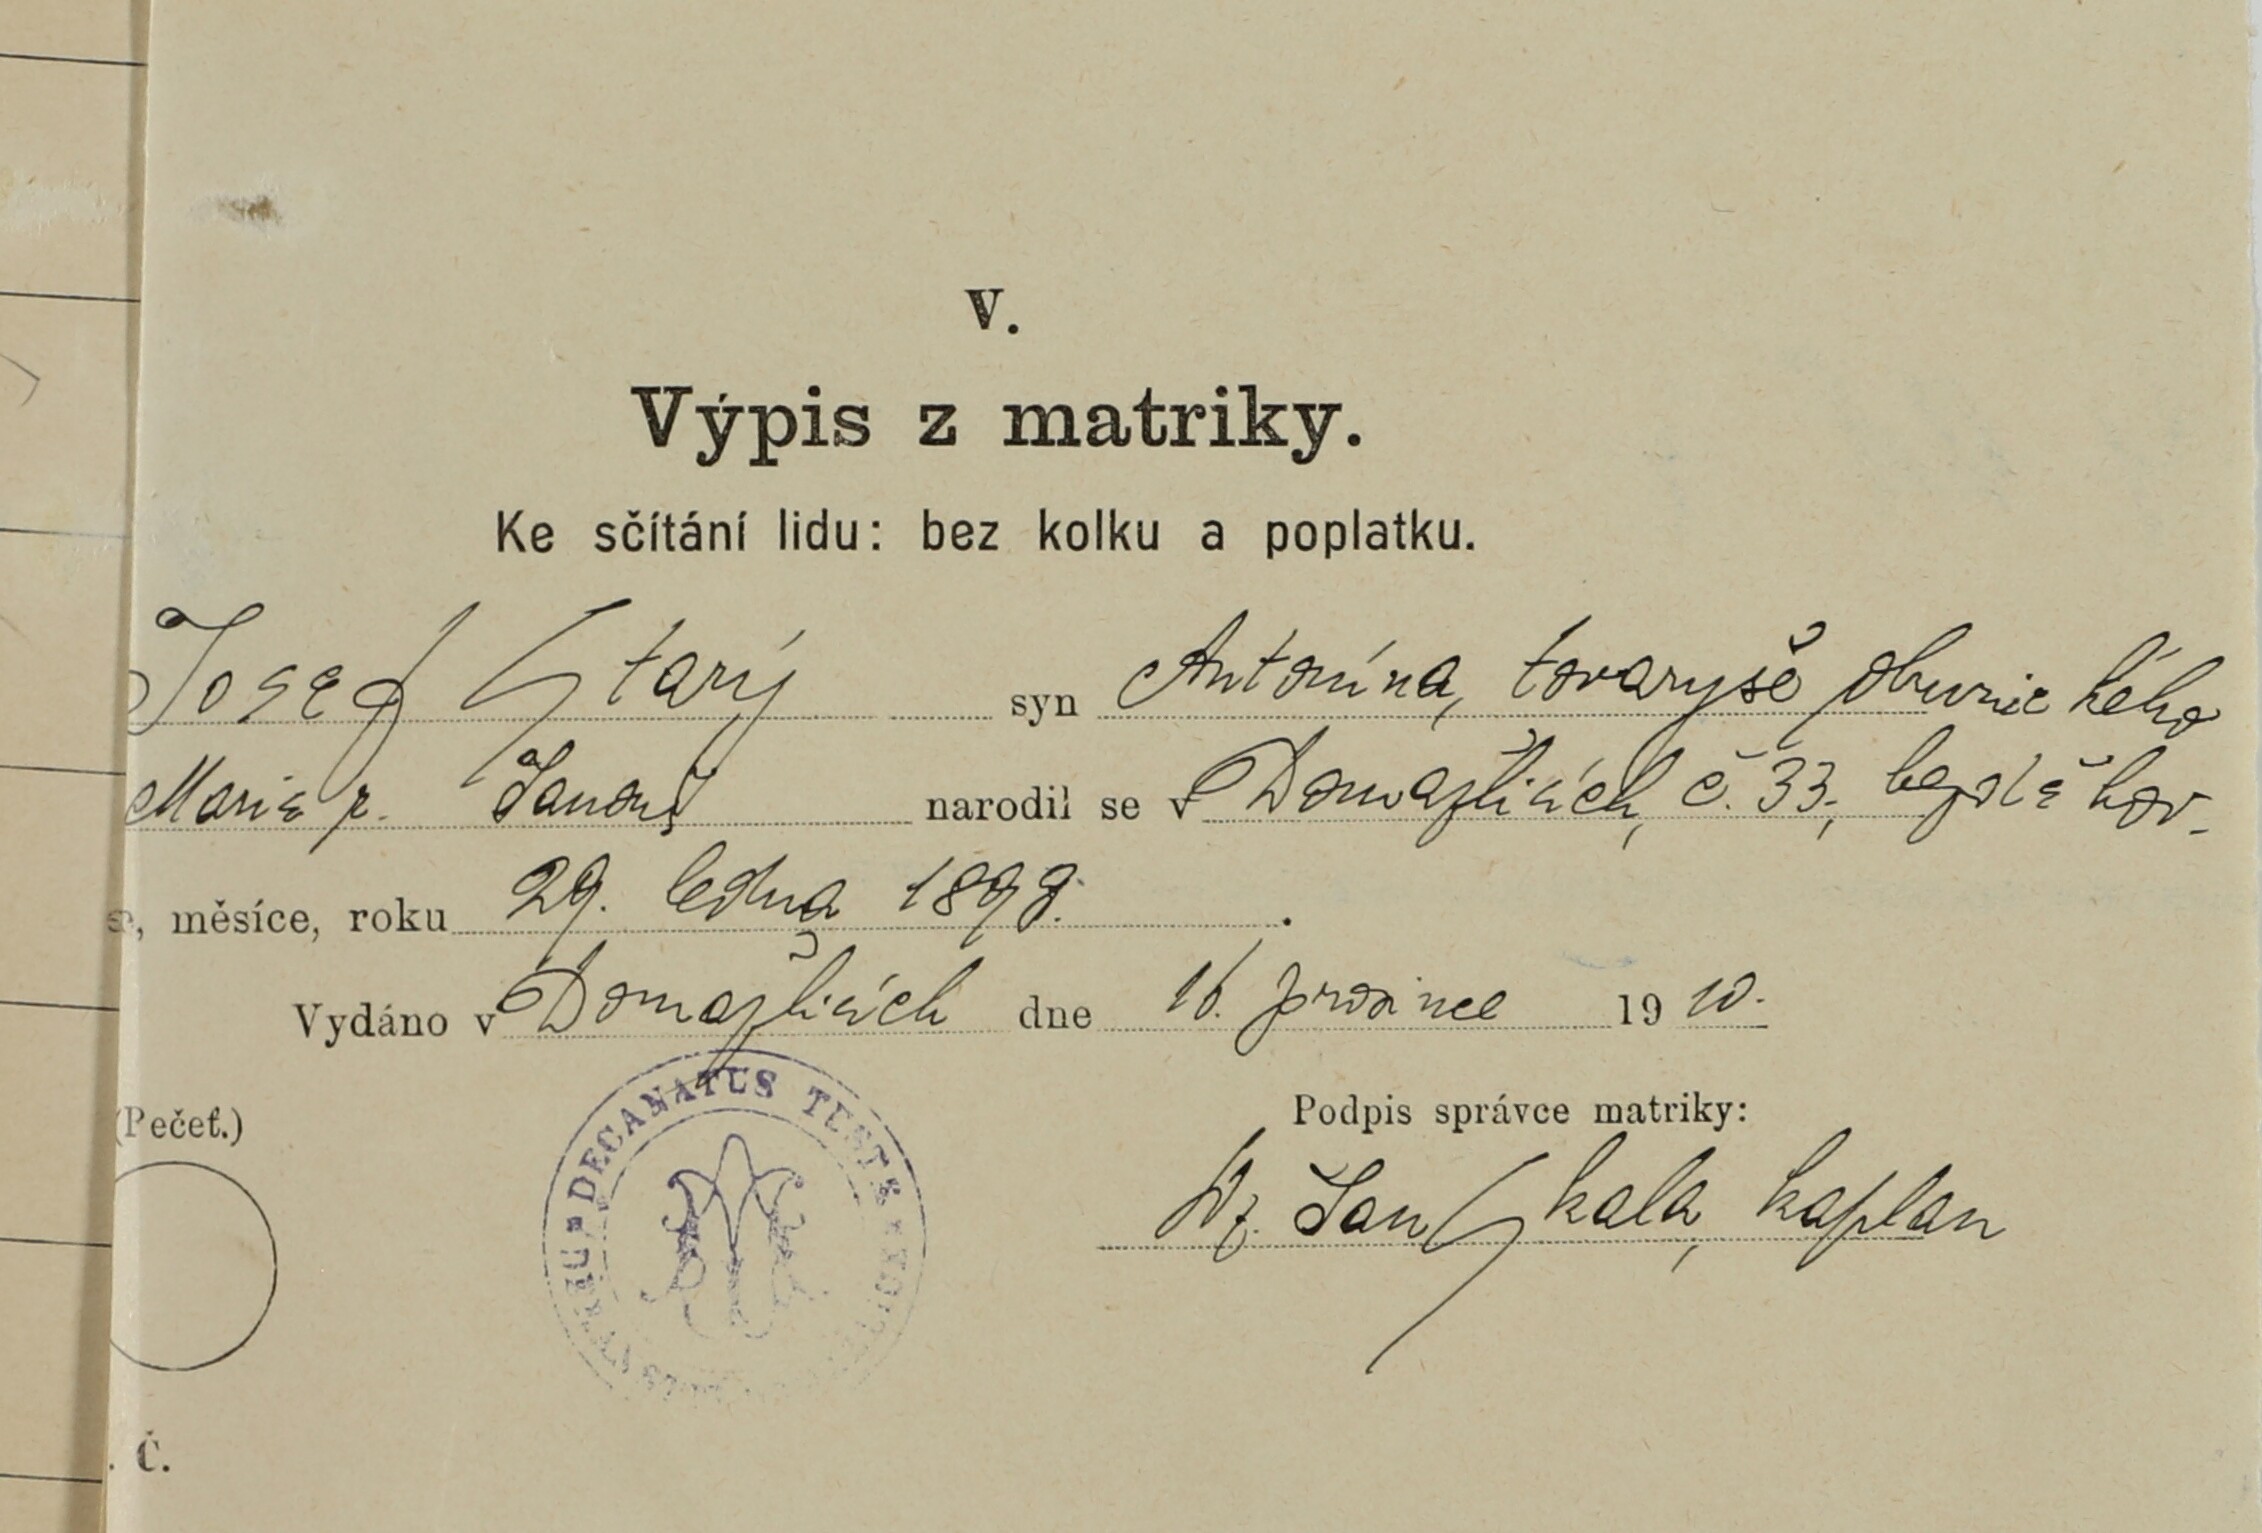 V.
Výpis z matriky.
Ke sčítání lidu: bez kolku a poplatku.
Josef Starý syn Antonína, tovaryše obuvnického
Marie r. narodil se v Domažlicích, č. 33,
, měsíce, roku 29. ledna 1898.
Vydáno v Domažlicích dne 16. prosince 1910.
DECANATUS
(Pečeť.)
Podpis správce matriky:
Jan Skala, kaplan
. Č.